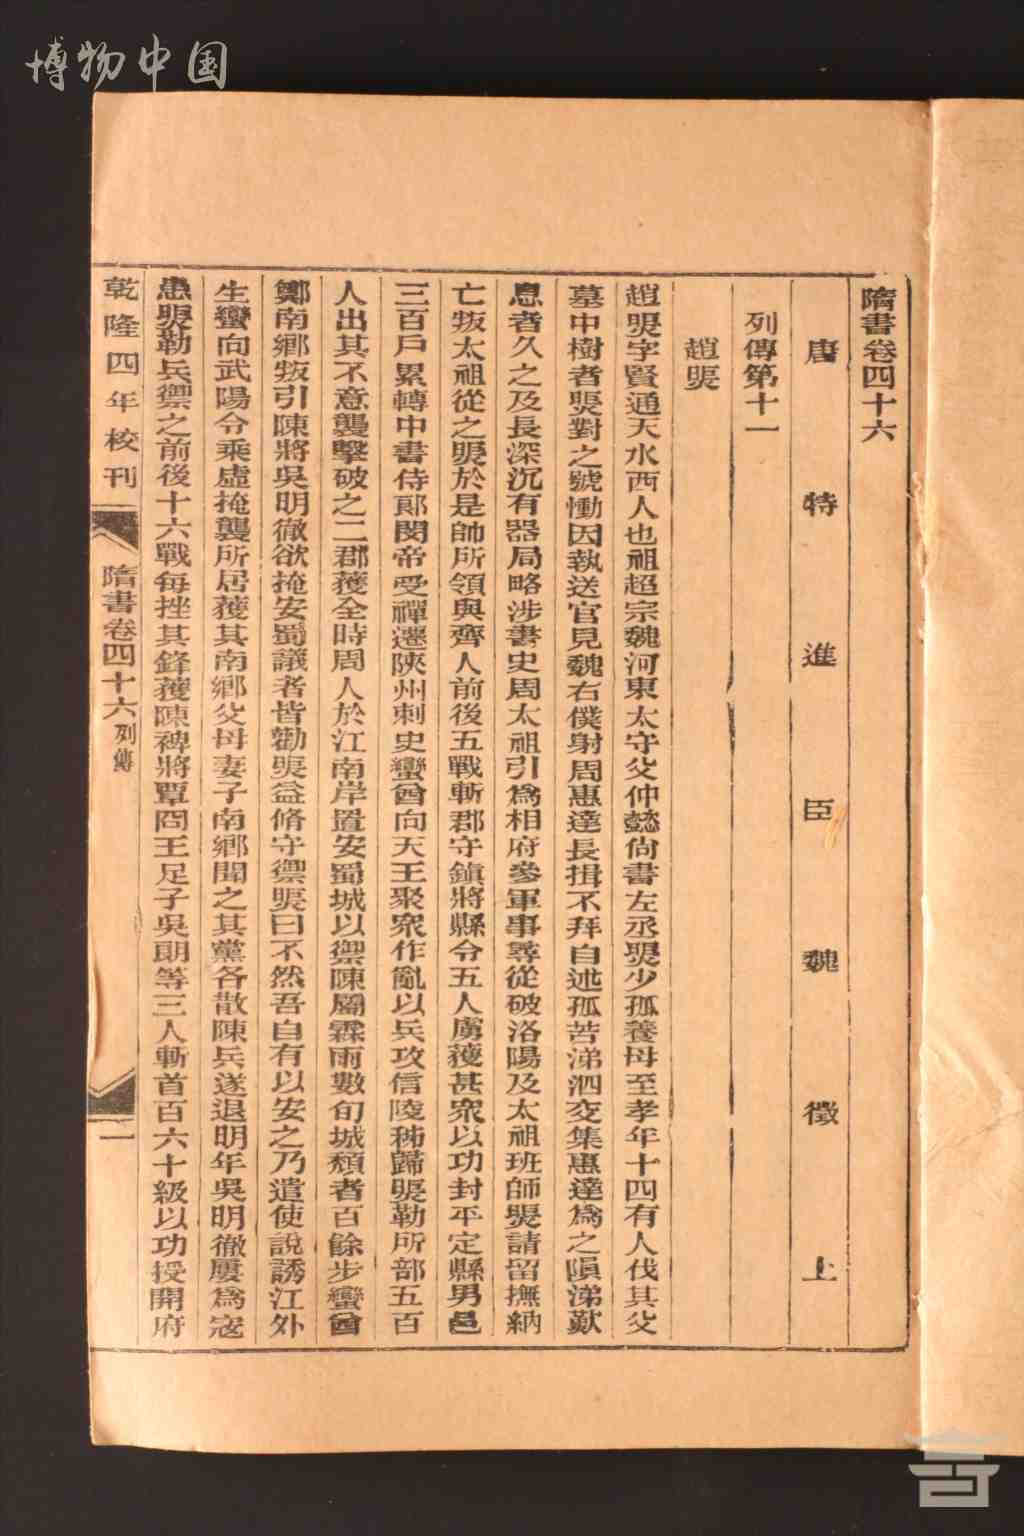 博物中国
隋書卷四十六
唐特進臣魏徵上
列傳第十一
趙煚
趙煚字賢通天水西人也祖超宗魏河東太守父仲懿尙書左丞煚少孤養母至孝年十四有人伐其父
墓中樹者煚對之號慟因執送官見魏右僕射周惠達長揖不拜自述孤苦涕泗交集惠達爲之隕涕歎
息者久之及長深沉有器局略涉書史周太祖引爲相府參軍事尋從破洛陽及太祖班師煚請留撫納
亡叛太祖從之煚於是帥所領與齊人前後五戰斬郡守鎮將縣令五人虜獲甚衆以功封平定縣男邑
三百戶累轉中書侍郞閔帝受禪遷陝州刺史蠻酋向天王聚衆作亂以兵攻信陵秭歸煚勒所部五百
人出其不意襲擊破之二郡獲全時周人於江南岸置安蜀城以禦陳屬霖雨數旬城頹者百餘步蠻酋
鄭南鄉叛引陳將吳明徹欲掩安蜀議者皆勸煚益脩守禦煚曰不然吾自有以安之乃遣使說誘江外
生蠻向武陽令乘虛掩襲所居獲其南鄉父母妻子南鄉聞之其黨各散陳兵遂退明年吳明徹屢爲寇
患煚勒兵禦之前後十六戰每挫其鋒獲陳裨將覃冏王足子吳朗等三人斬首百六十級以功授開府
乾隆四年校刊
隋書卷四十六列傳
一